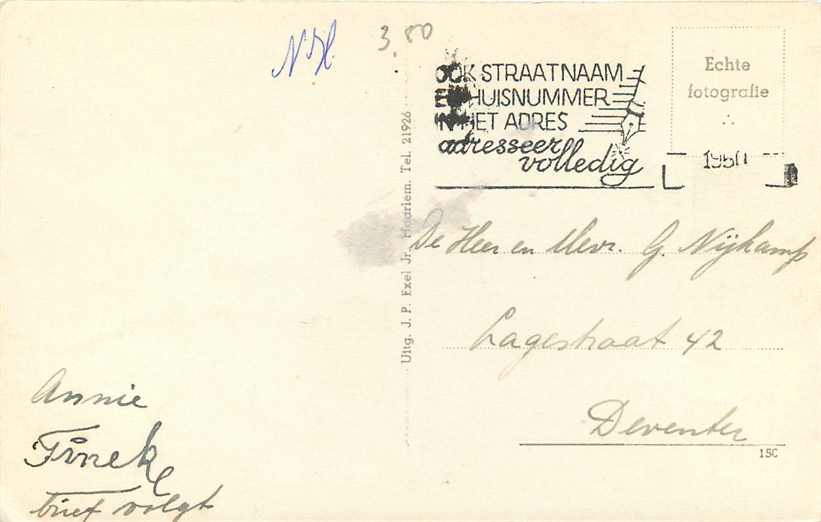 NH
3.80
OOK STRAATNAAM
EN HUISNUMMER
IN HET ADRES
adresseer
volledig
Echte
fotografie
1950
Uitg. J. P. Exel Jr. Haarlem. Tel. 21926
De Heer en Mevr. G. Nijkamp
Lagestraat 42
Deventer
150
Annie
Tineke
brief volgt